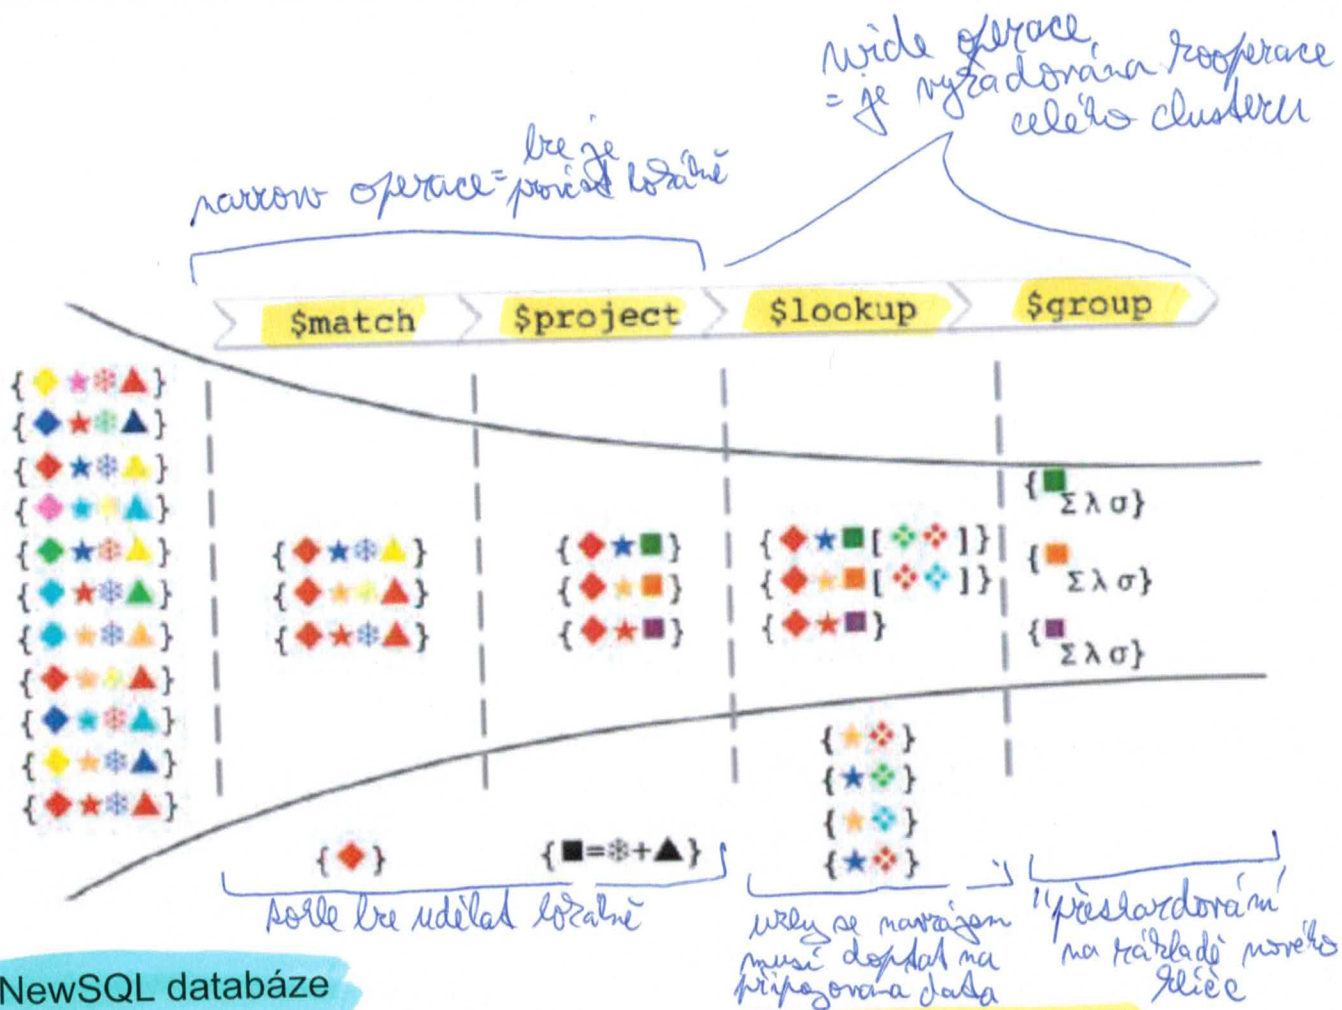 wide operace
= je vyžadována kooperace
celého clusteru
narrow operace = lze je
provést lokálně
$match $project $lookup $group
Σ λ σ}
Σ λ σ}
Σ λ σ}
{■=❄+▲}
tohle lze udělat lokálně
uzly se navzájem
musí doptat na
připojovaná data
"přeshardování"
na základě nového
klíče
NewSQL databáze